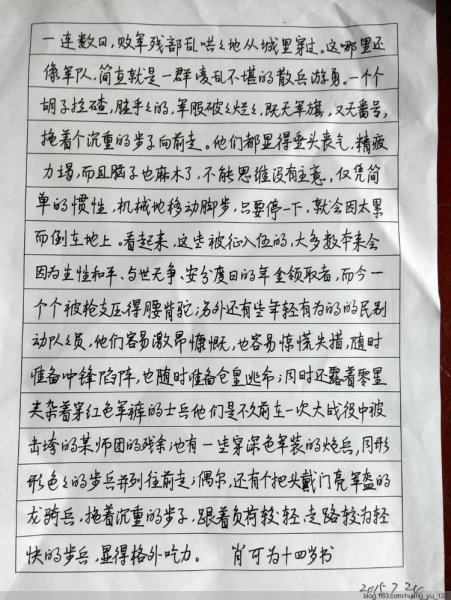 一连数日，败军残部乱哄々地从城里穿过。这哪里还
像军队，简直就是一群凌乱不堪的散兵游勇。一个个
胡子拉碴，脏乎々的，军服破々烂々，既无军旗，又无番号，
拖着个沉重的步子向前走。他们都显得垂头丧气，精疲
力竭，而且脑子也麻木了，不能思维没有主意，仅凭简
单的惯性，机械地移动脚步，只要停一下，就会因太累
而倒在地上。看起来，这些被征入伍的，大多数本来会
因为生性和平、与世无争、安分度日的年金领取者，而今一
个个被枪支压得腰背驼；另外还有些年轻有为的的民别
动队々员，他们容易激昂慷慨，也容易惊慌失措，随时
准备冲锋陷阵，也随时准备仓皇逃命；同时还露着零星
夹杂着穿红色军裤的士兵他们是不久前在一次大战役中被
击垮的某师团的残余；也有一些穿深色军装的炮兵，同形
形色々的步兵并列往前走；偶尔，还有个把头戴闪亮军盔的
龙骑兵，拖着沉重的步子，跟着负荷较轻，走路较为轻
快的步兵，显得格外吃力。 肖可为十四岁书
2015.7.20
blog.163.com/huang_yu_12